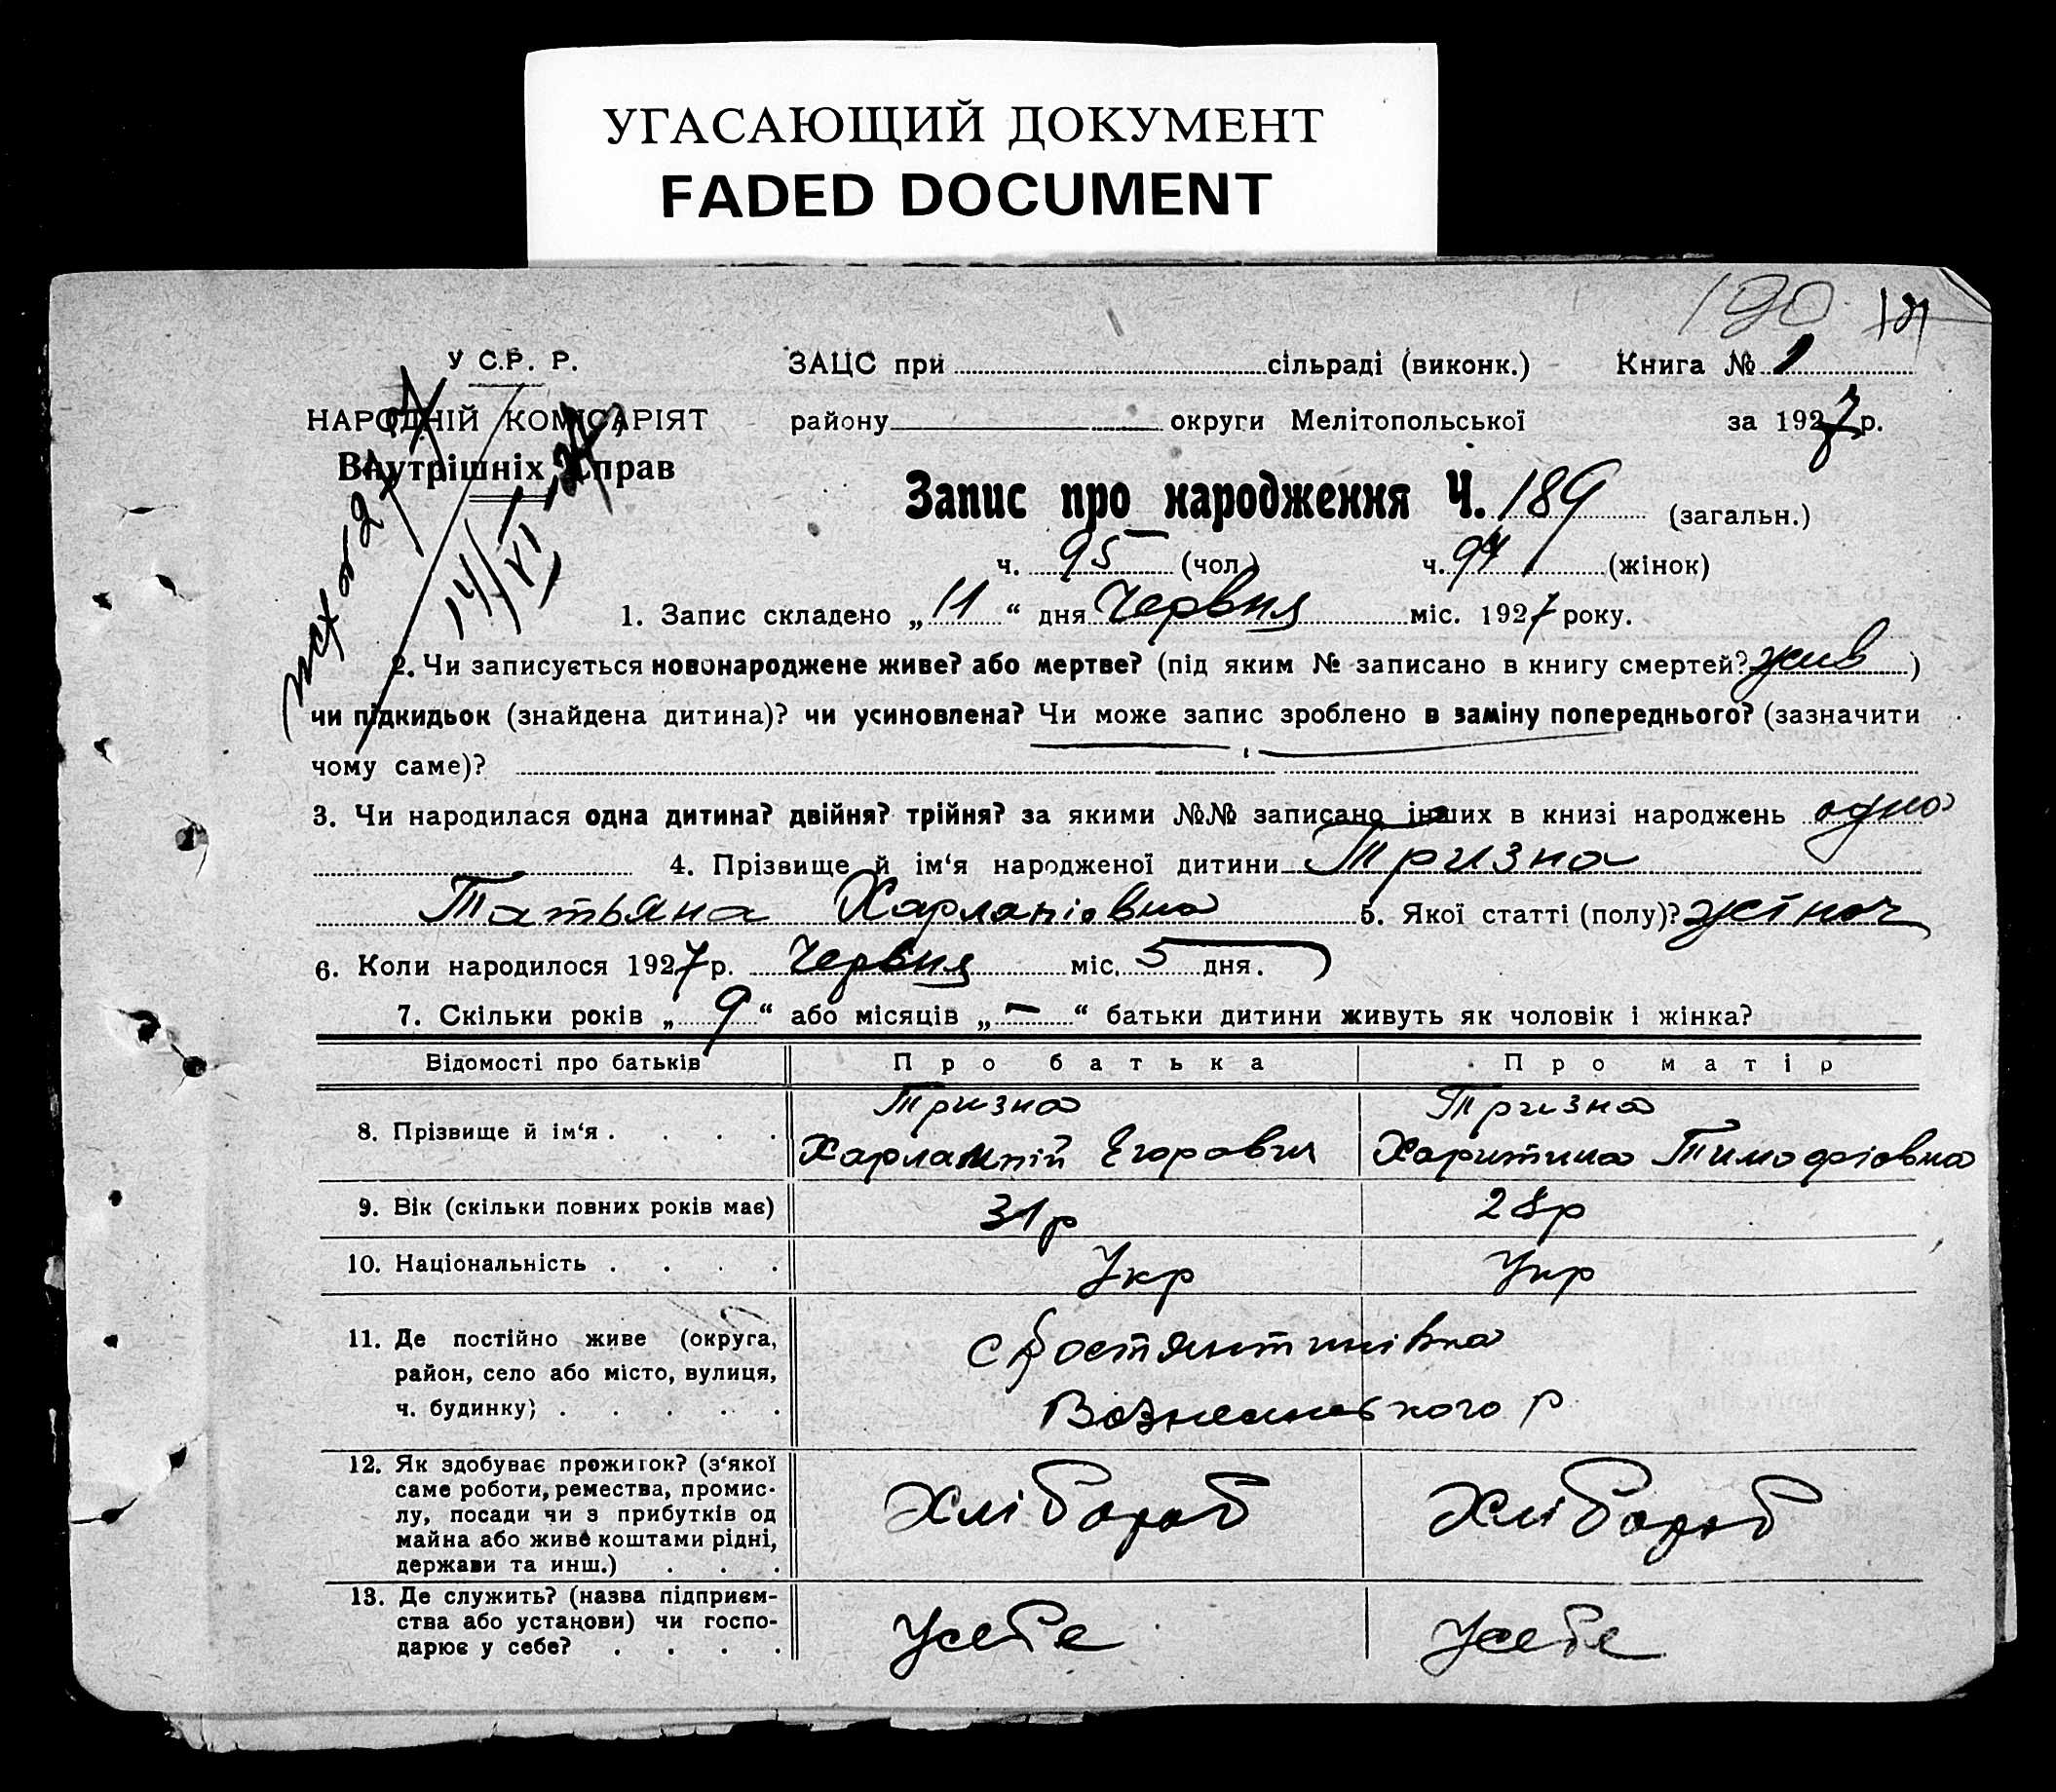 УГАСАЮЩИЙ ДОКУМЕНТ
FADED DOCUMENT
190
У С.Р. Р.
ЗАЦС при сільраді (виконк.) Книга № 1
НАРОДНІЙ КОМІСАРІЯТ
району округи Мелітопольської за 1927 р.
Внутрішніх Справ
Запис про народження Ч. 189 (загальн.)
ч. 95 (чол.) ч. 94 (жінок)
14/VI
1. Запис складено „11“ дня Червня міс. 1927 року.
2. Чи записується новонароджене живе? або мертве? (під яким № записано в книгу смертей? жив)
чи підкидьок (знайдена дитина)? чи усиновлена? Чи може запис зроблено в заміну попереднього? (зазначити
чому саме)?
3. Чи народилася одна дитина? двійня? трійня? за якими №№ записано інших в книзі народжень одно
4. Прізвище й ім‘я народженої дитини Тризна
Татьяна Харлапіовна 5. Якої статті (полу)? жіноч
6. Коли народилося 1927 р. Червня міс. 5 дня.
7. Скільки років „9“ або місяців „-“ батьки дитини живуть як чоловік і жінка?
Відомості про батьків Про батька Про матір
Тризна Тризна
8. Прізвище й ім‘я . . . . Харлампій Егорович Харитина Тимофіовна
9. Вік (скільки повних років має) 31р 28р
10. Національність . . . . Укр Укр
11. Де постійно живе (округа,
район, село або місто, вулиця,
ч. будинку) . . . . .
с Костянтинівка
Вознесенського р
12. Як здобуває прожиток? (з‘якої
саме роботи, ремества, промис-
лу, посади чи з прибутків од
майна або живе коштами рідні,
держави та инш.) . . .
Хлібороб Хлібороб
13. Де служить? (назва підприєм-
ства або установи) чи госпо-
дарює у себе? . . . .
Усебе Усебе